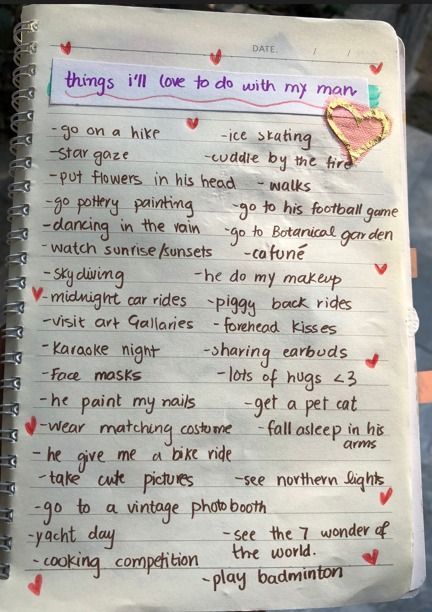 DATE. / /
things i'll love to do with my man
-go on a hike -ice skating
-star gaze -cuddle by the fire
-put flowers in his head -walks
-go pottery painting -go to his football game
-dancing in the rain -go to Botanical garden
-watch sunrise/sunsets -cafuné
-skydiving -he do my makeup
-midnight car rides -piggy back rides
-visit art Gallaries -forehead kisses
-Karaoke night -sharing earbuds
-Face masks -lots of hugs <3
-he paint my nails -get a pet cat
-wear matching costume -fall asleep in his
arms
-he give me a bike ride
-take cute pictures -see northern lights
-go to a vintage photobooth
-yacht day -see the 7 wonder of
the world.
-cooking competition
-play badminton